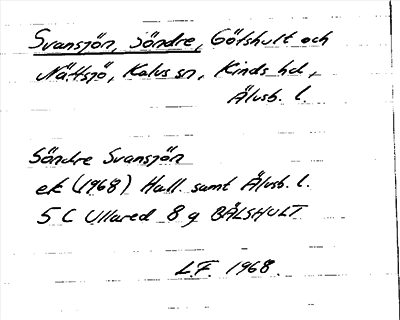 Svansjön, Söndre, Götshult och
Nättsjö, Kalvs sn, Kinds hd,
Älvsb. l.
Söndre Svansjön
ek (1968) Hall. samt Älvsb. l.
5 C Ullared 8 g BÅLSHULT
L.F. 1968.